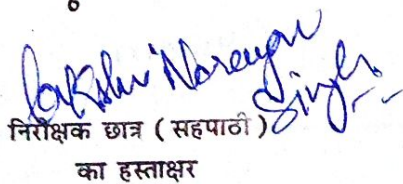 Lakshmi Narayan
Singh
निरीक्षक छात्र ( सहपाठी )
का हस्ताक्षर